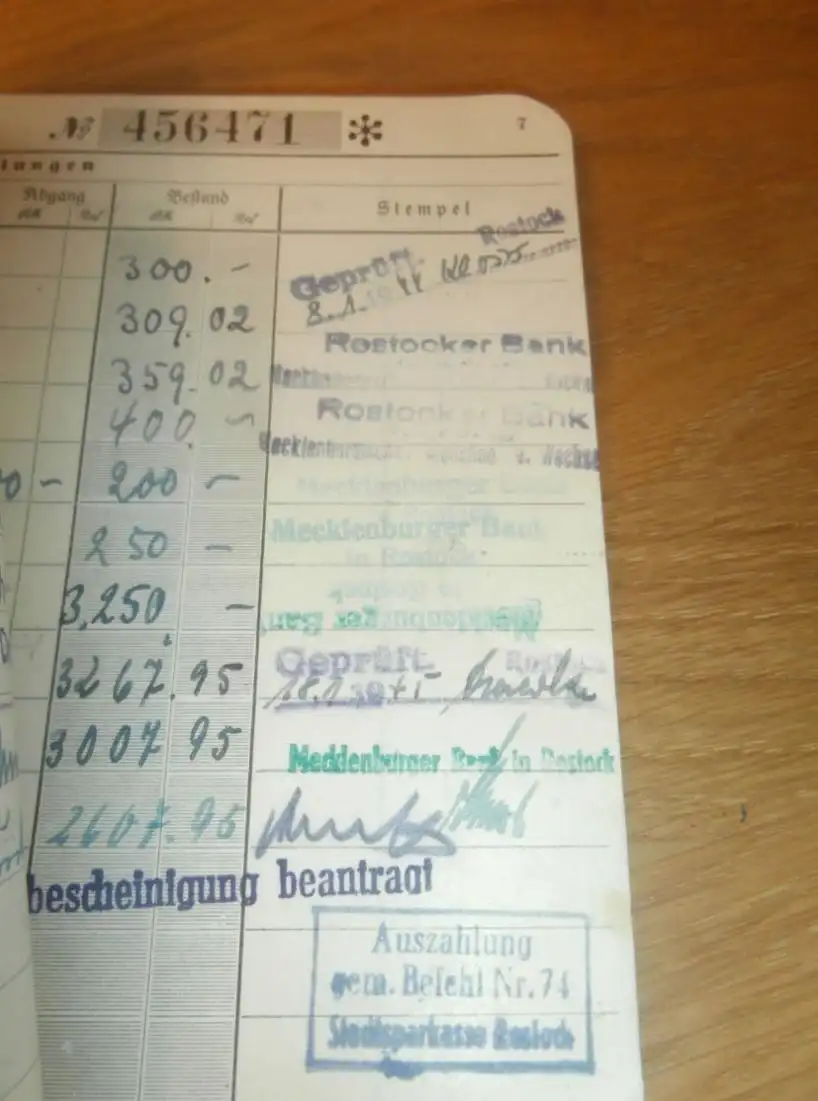 № 456471 * 7
lungen
Abgang Bestand Stempel
RM Rpf RM Rpf
Rostock
300. - Geprüft
8.1.19
309. 02
Rostocker Bank
359. 02
400. - Rostocker Bank
Mecklenburger Bank
0 - 200 -
Mecklenburger Bank
in Rostock
250 -
3.250 -
Mecklenburger Bank
Geprüft Rostock
3267.95 18.1.1945
3007.95 Mecklenburger Bank in Rostock
2607.95
bescheinigung beantragt
Auszahlung
gem. Befehl Nr. 74
Stadtsparkasse Rostock